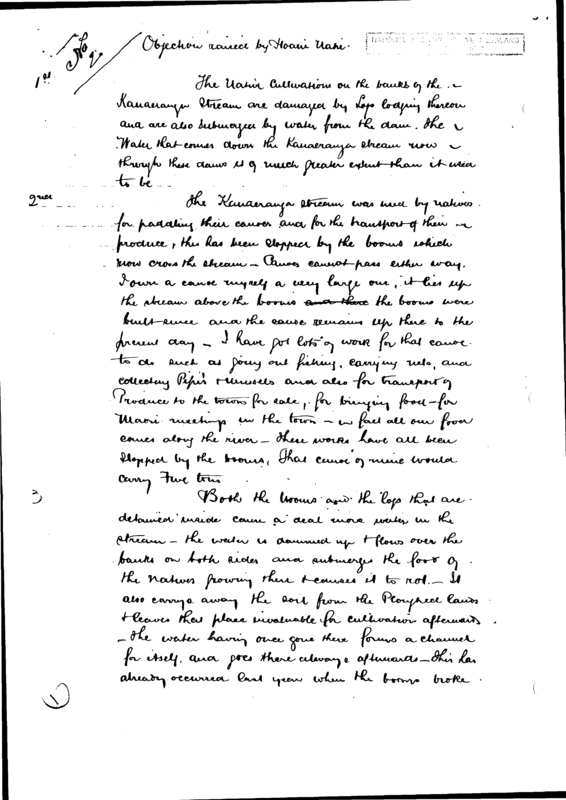 No 2
Objection raised by Hoani Nahe.
1st
The Native Cultivations on the banks of the
Kauaeranga Stream are damaged by Logs lodging thereon
and are also submerged by water from the dam. The
Water that comes down the Kauaeranga Stream now
through these dams is of much greater extent than it used
to be
2nd
The Kauaeranga Stream was used by natives
for paddling their canoes and for the transport of their
produce, this has been stopped by the booms which
now cross the stream - Canoes cannot pass either way.
I own a canoe myself a very large one, it lies up
the stream above the booms and there the booms were
built since and the canoe remains up there to the
present day - I have got lots of work for that canoe
to do such as going out fishing, carrying nets, and
collecting Pipis & Mussels and also for transport of
Produce to the town for sale, for bringing food - for
Maori meetings in the town - in fact all our food
comes along the river - these works have all been
stopped by the booms, That canoe of mine would
carry Five tons
3
Both the booms and the logs that are
detained inside cause a deal more water in the
stream - the water is dammed up & flows over the
banks on both sides and submerges the food of
the Natives growing there & causes it to rot. - It
also carrys away the soil from the Ploughed lands
& leaves that place invaluable for cultivation afterwards
- the water having once gone there forms a channel
for itself, and goes there always afterwards - this has
already occurred last year when the booms broke
1